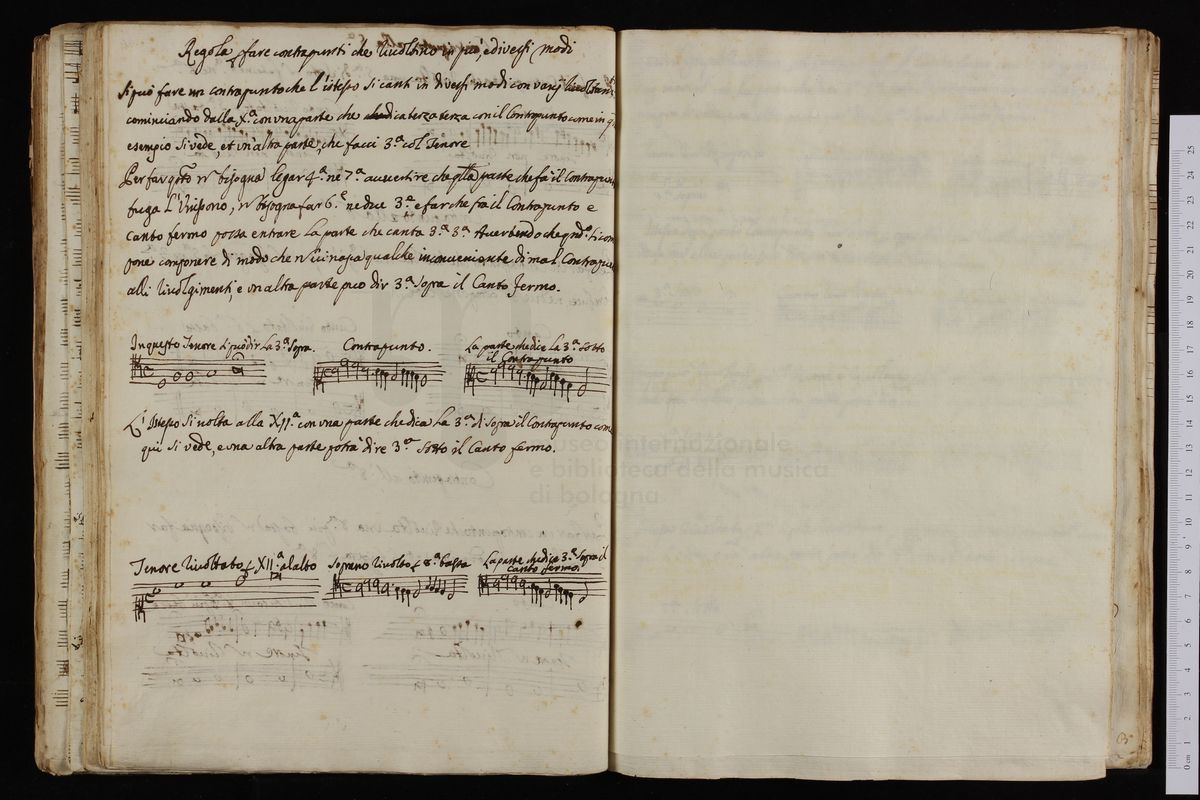 Regola p fare contrapunti che rivoltino in più, e diversi modi
Si può fare un contrapunto che l'istesso si canti in diversi modi con varij
cominciando dalla X.a con una parte che dica terza terza con il Contrapunto come in
esempio si vede, et un'altra parte, che facci 3.a col Tenore
Per far q.to n bisogna legar 4.a nè 7.a avvertire che parte che fà il Contrapun
fuga l'Unissono, n bisogna far 6.e ne due 3.e e far che frà il Contrapunto e
Canto fermo possa entrare la parte che canta 3.a 3.a Avertendo che
pone componere di modo che n vi nasca qualche inconveniente di mal Contrapun
alli rivolgimenti, e un altra parte può dir 3.a sopra il Canto fermo.
In questo Tenore si può dir la 3.a sopra.
Contrapunto.
La parte che dice la 3.a sotto
il Contrapunto
L'Istesso si volta alla XII.a con una parte che dica la 3.a di sopra il Contrapunto com
qui si vede, e una altra parte potrà dire 3.a sotto il Canto fermo.
Tenore rivoltato p XII.a al alto
Soprano rivolto p 8.a bassa
La parte che dice 3.a sopra il
canto fermo.
museo internazionale
e biblioteca della musica
di bologna
0 cm 1 2 3 4 5 6 7 8 9 10 11 12 13 14 15 16 17 18 19 20 21 22 23 24 25